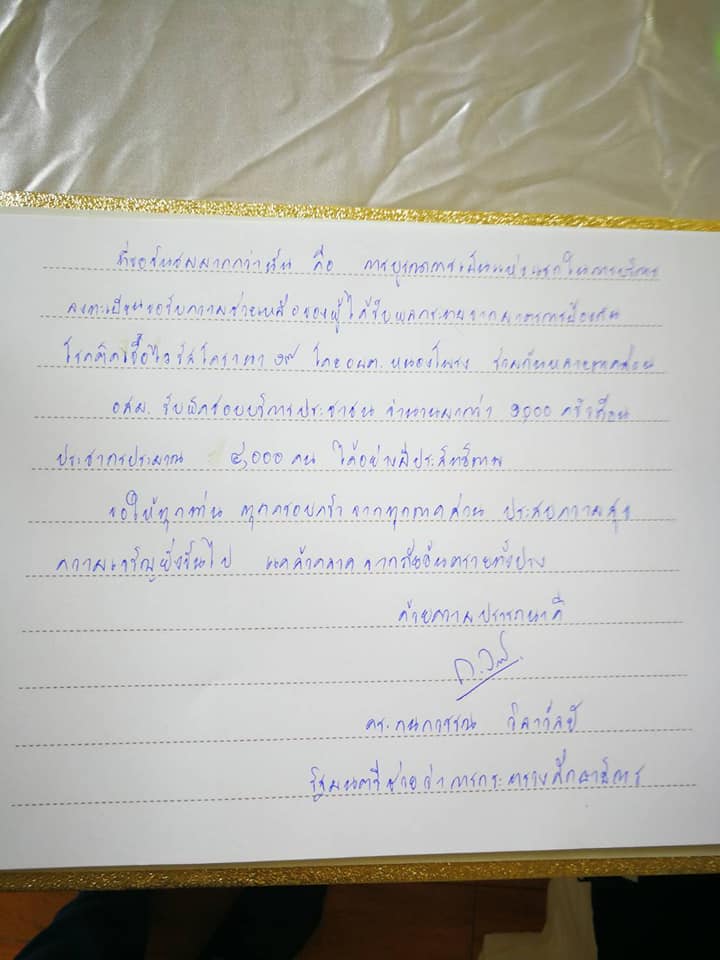 ที่ขอชื่นชมมากกว่านั้น คือ การบูรณาการเป็นแห่งแรกในการบริการ
ลงทะเบียนขอรับความช่วยเหลือของผู้ได้รับผลกระทบจากมาตรการป้องกัน
โรคติดเชื้อไวรัสโคโรนา ๑๙ โดย อบต. หนองโพรง ร่วมกับหลายภาคส่วน
อสม. รับผิดชอบบริการประชาชน จำนวนมากกว่า ๑,๐๐๐ ครัวเรือน
ประชากรประมาณ ๔,๐๐๐ คน ได้อย่างมีประสิทธิภาพ
ขอให้ทุกท่าน ทุกครอบครัว จากทุกภาคส่วน ประสบความสุข
ความเจริญยิ่งขึ้นไป แคล้วคลาดจากภัยอันตรายทั้งปวง
ด้วยความปรารถนาดี
ดร. กนกวรรณ วิลาวัลย์
รัฐมนตรีช่วยว่าการกระทรวงศึกษาธิการ